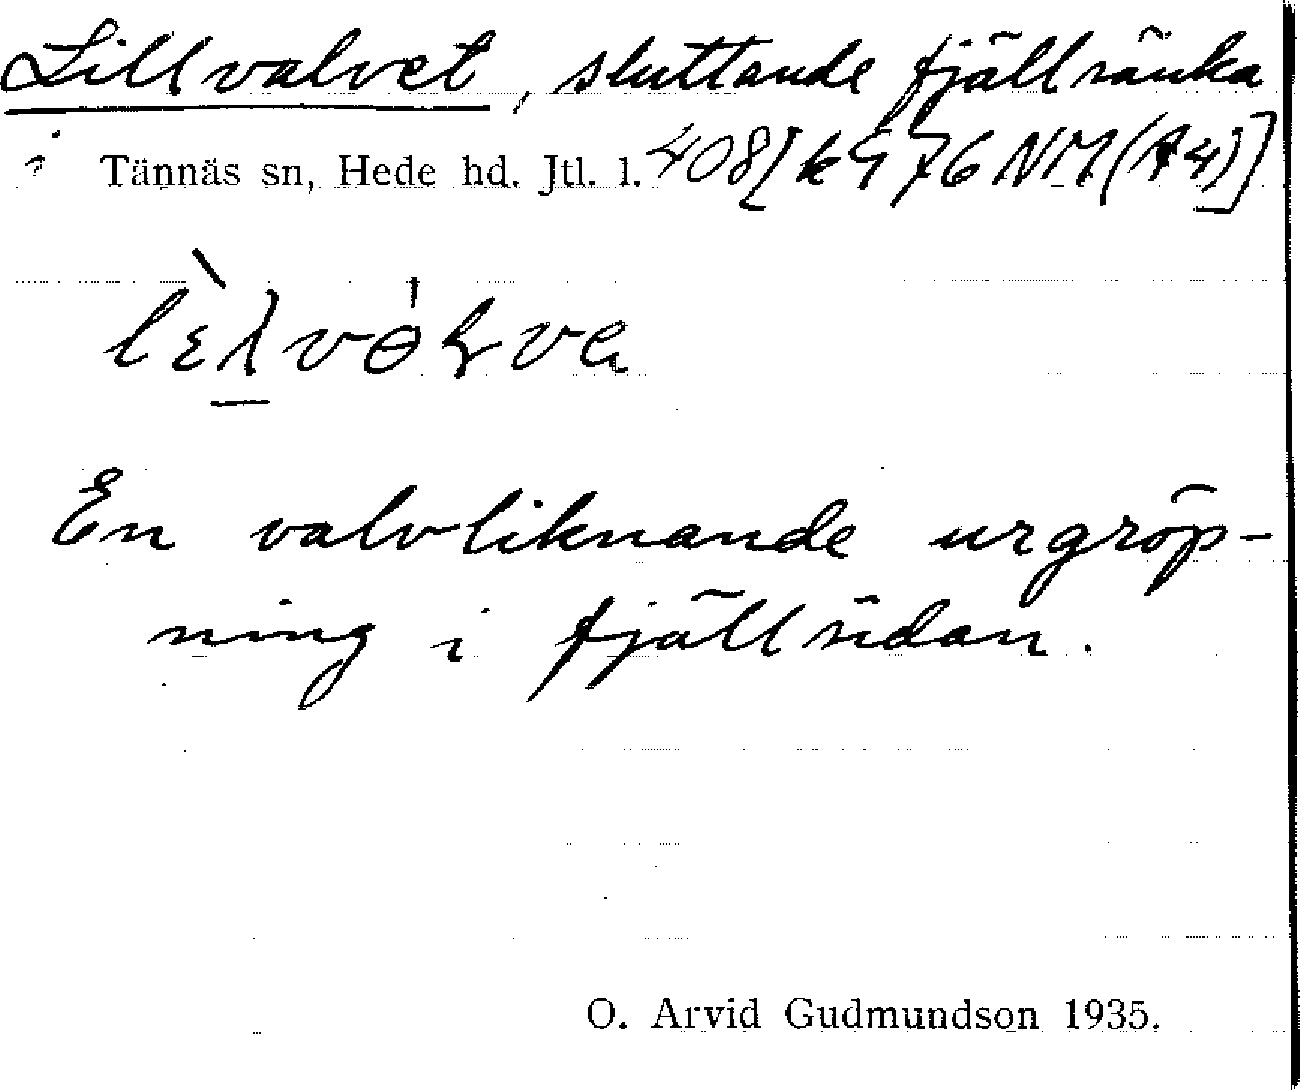 Lillvalvet, sluttande fjällsänka
i Tännäs sn, Hede hd. Jtl. l. 408 [k976 NM (A4)]
En valvliknande urgröp-
ning i fjällsidan.
O. Arvid Gudmundson 1935.